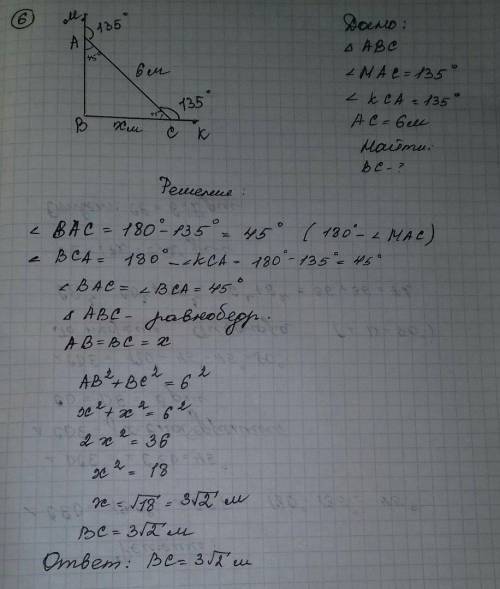 6
M
135°
A
45°
6 м
135°
45°
B
x м
C
K
Дано:
△ ABC
∠ MAC = 135°
∠ KCA = 135°
AC = 6 м
Найти:
BC - ?
Решение:
∠ BAC = 180° - 135° = 45° (180° - ∠ MAC)
∠ BCA = 180° - ∠KCA - 180° - 135° = 45°
∠ BAC = ∠ BCA = 45°
△ ABC - равнобедр.
AB = BC = x
AB² + BC² = 6²
x² + x² = 6²
2x² = 36
x² = 18
x = √18 = 3√2 м
BC = 3√2 м
Ответ: BC = 3√2 м